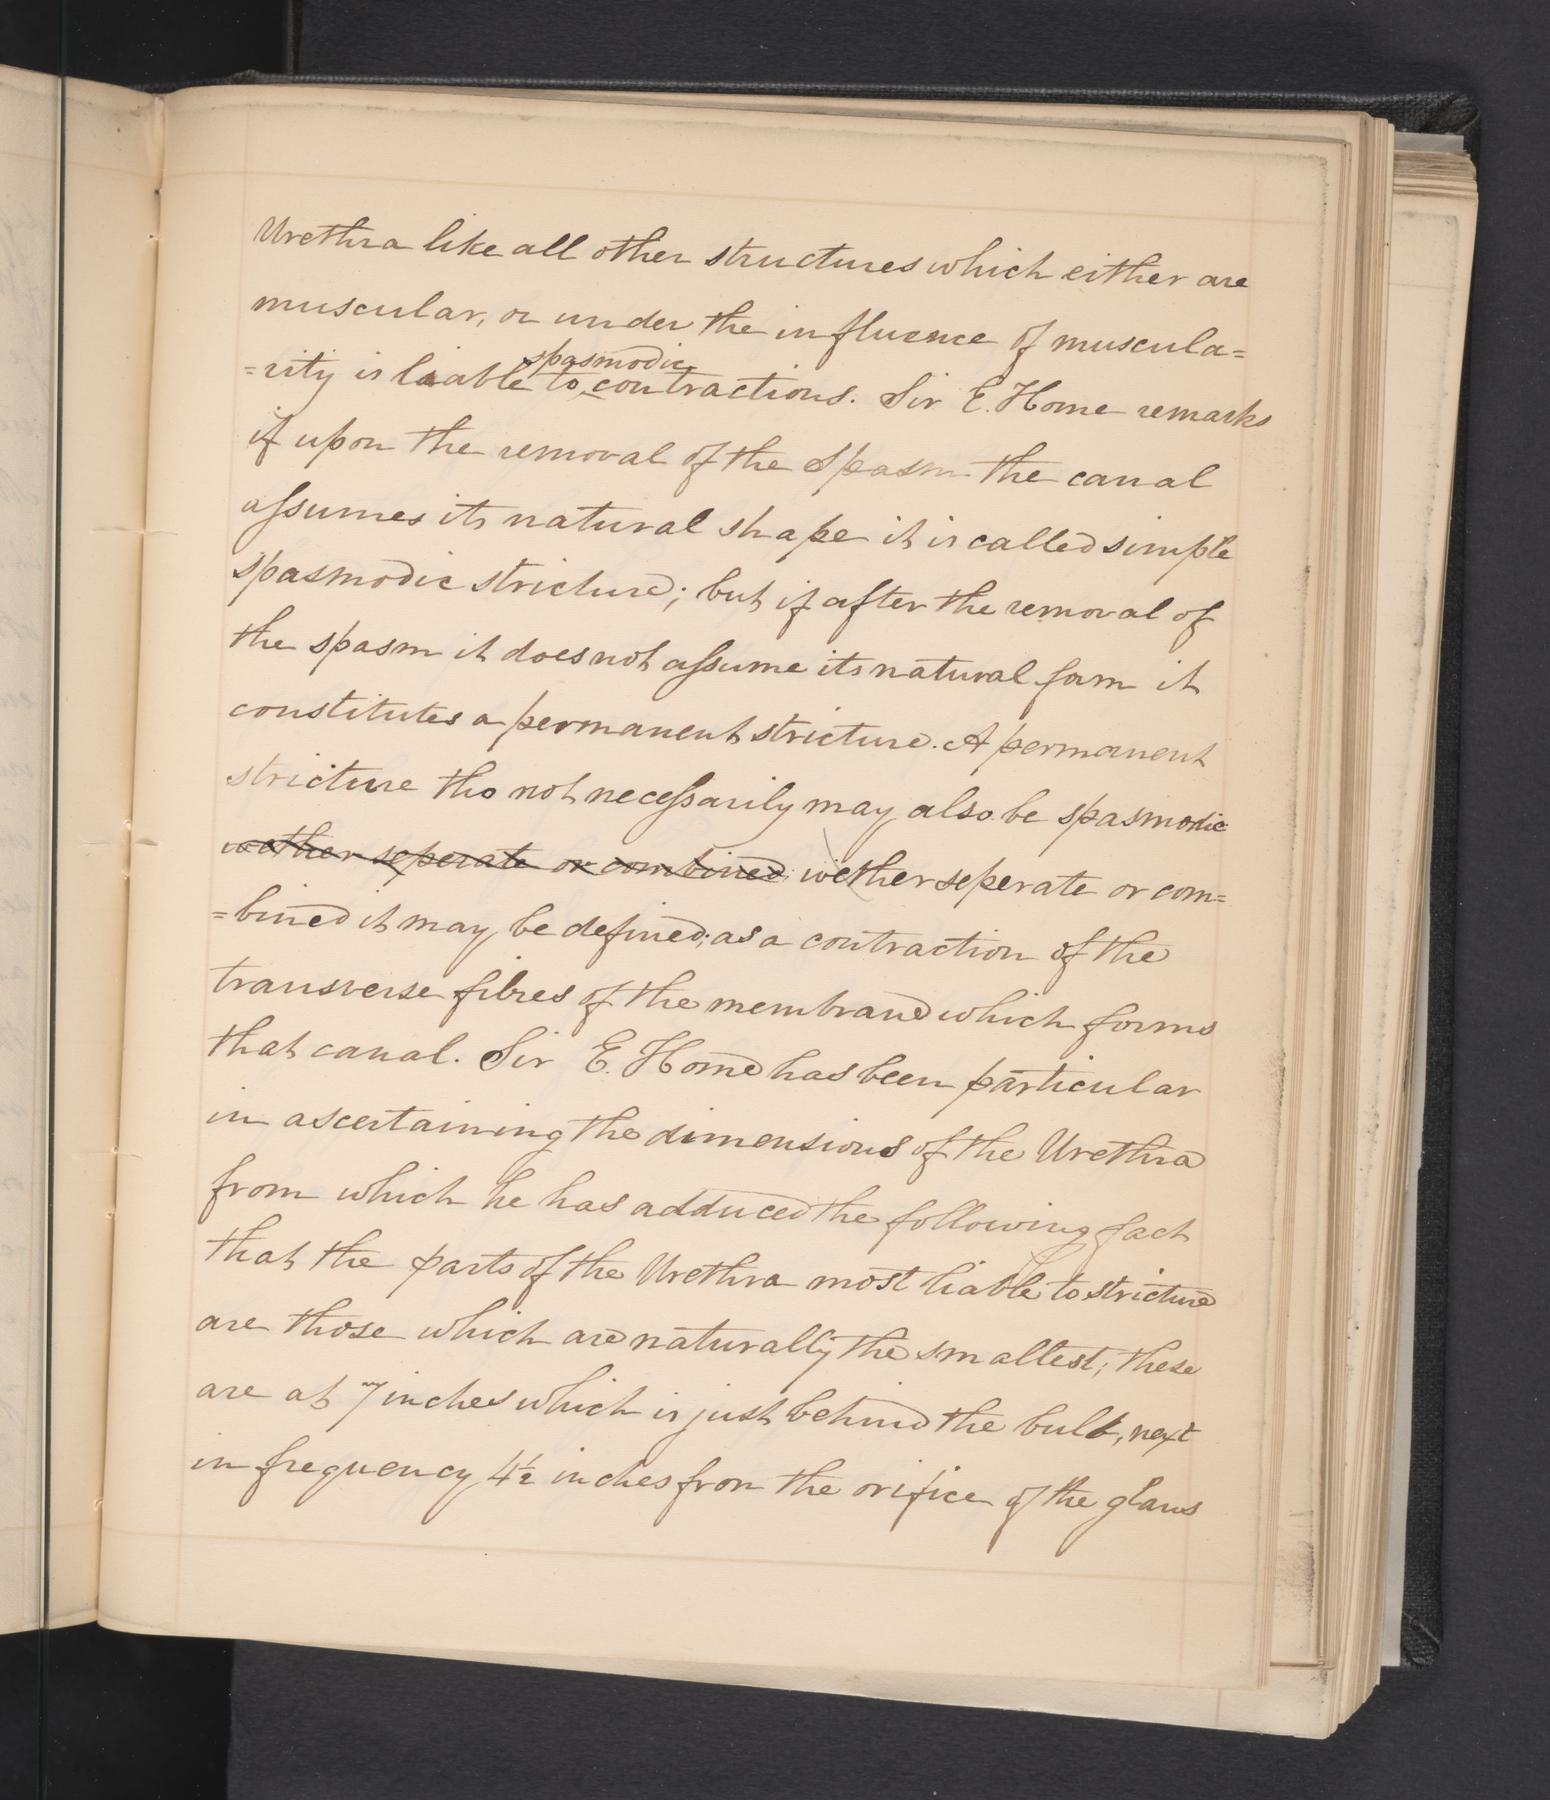 Urethra like all other structures which either are
muscular, or under the influence of muscula=
spasmodic
=rity is liable to contractions. Sir E. Home remarks
if upon the removal of the spasm the canal
assumes its natural shape it is called simple
spasmodic stricture; but if after the removal of
the spasm it does not assume its natural form it
constitutes a permanent stricture. A permanent
stricture tho not necessarily may also be spasmodic
wether seperate or combined wether seperate or com=
=bined it may be defined; as a contraction of the
transverse fibres of the membrane which forms
that canal. Sir E. Home has been particular
in ascertaining the dimensions of the Urethra
from which he has adduced the following fact
that the parts of the Urethra most liable to stricture
are those which are naturally the smallest; these
are at 7 inches which is just behind the bulb, next
in frequency 4½ inches from the orifice of the glans